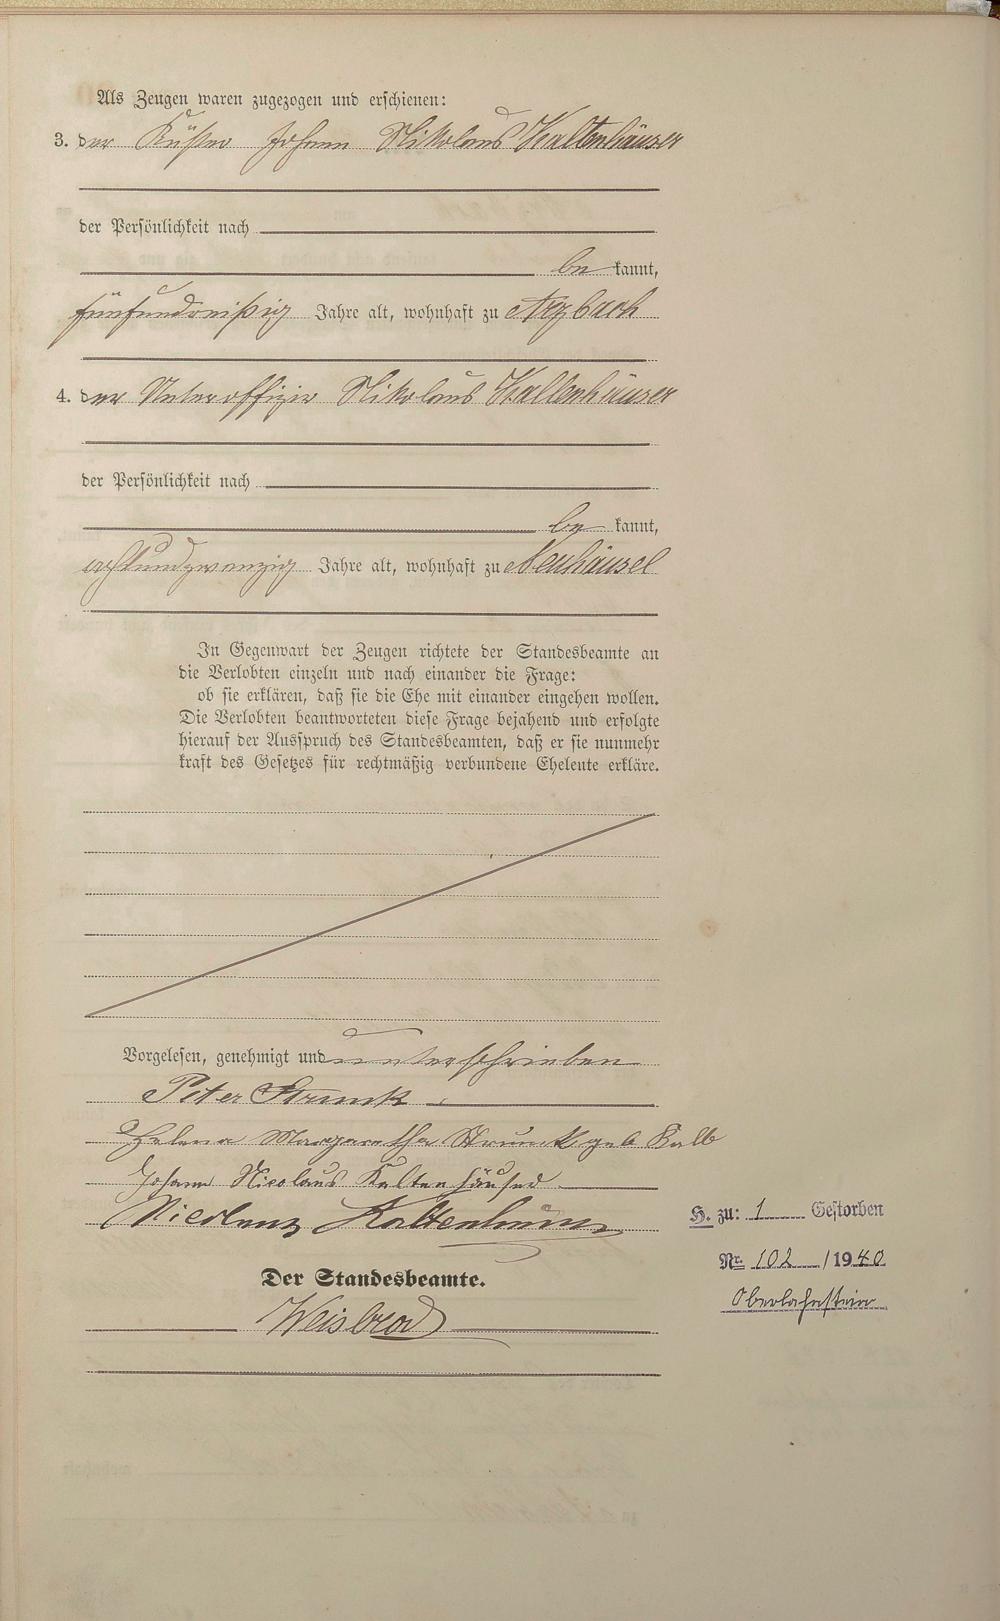 Als Zeugen waren zugezogen und erschienen:
3. der Küster Johann Nikolaus Kaltenhäuser
der Persönlichkeit nach
be kannt,
fünfunddreißig Jahre alt, wohnhaft zu Arzbach
4. der Unteroffizier Nikolaus Kaltenhäuser
der Persönlichkeit nach
be kannt,
achtundzwanzig Jahre alt, wohnhaft zu Neuhäusel
In Gegenwart der Zeugen richtete der Standesbeamte an
die Verlobten einzeln und nach einander die Frage:
ob sie erklären, daß sie die Ehe mit einander eingehen wollen.
Die Verlobten beantworteten diese Frage bejahend und erfolgte
hierauf der Ausspruch des Standesbeamten, daß er sie nunmehr
kraft des Gesetzes für rechtmäßig verbundene Eheleute erkläre.
Vorgelesen, genehmigt und unterschrieben
Peter Strunk
Helena Margaretha Strunk geb Kalb
Johann Nicolaus Kaltenhäuser
Nicolaus Kaltenhäuser
H. zu: 1 Gestorben
Nr. 102 / 1940
Oberlahnstein
Der Standesbeamte.
Weisbrod